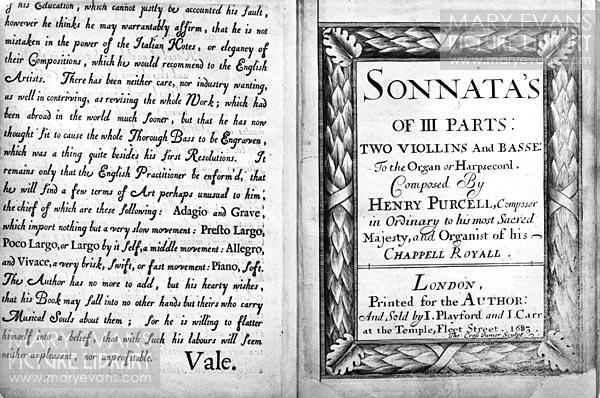 of his Education, which cannot justly be accounted his fault,
however he thinks he may warrantably affirm, that he is not
mistaken in the power of the Italian Notes, or elegancy of
their Compositions, which he would recommend to the English
Artists. There has been neither care, nor industry wanting,
as well in contriving, as revising the whole Work; which had
been abroad in the world much sooner, but that he has now
thought fit to cause the whole Thorough Bass to be Engraven,
which was a thing quite besides his first Resolutions. It
remains only that the English Practitioner be enform'd, that
he will find a few terms of Art perhaps unusual to him,
the chief of which are these following: Adagio and Grave,
which import nothing but a very slow movement: Presto Largo,
Poco Largo, or Largo by it self, a middle movement: Allegro,
and Vivace, a very brisk, swift, or fast movement: Piano, soft.
The Author has no more to add, but his hearty wishes,
that his Book may fall into no other hands but theirs who carry
Musical Souls about them; for he is willing to flatter
himself into a belief, that with such his labours will seem
neither unpleasant, nor unprofitable.
Vale.
SONNATA'S
OF III PARTS:
TWO VIOLLINS And BASSE:
To the Organ or Harpsecord.
Composed By
HENRY PURCELL, Composer
in Ordinary to his most Sacred
Majesty, and Organist of his
CHAPPELL ROYALL.
LONDON,
Printed for the AUTHOR:
And Sold by I. Playford and I. Carr
at the Temple, Fleet Street. 1683.
Tho: Cross Junior Sculpt
MARY EVANS
PICTURE LIBRARY
PICTURE LIBRARY
www.maryevans.com